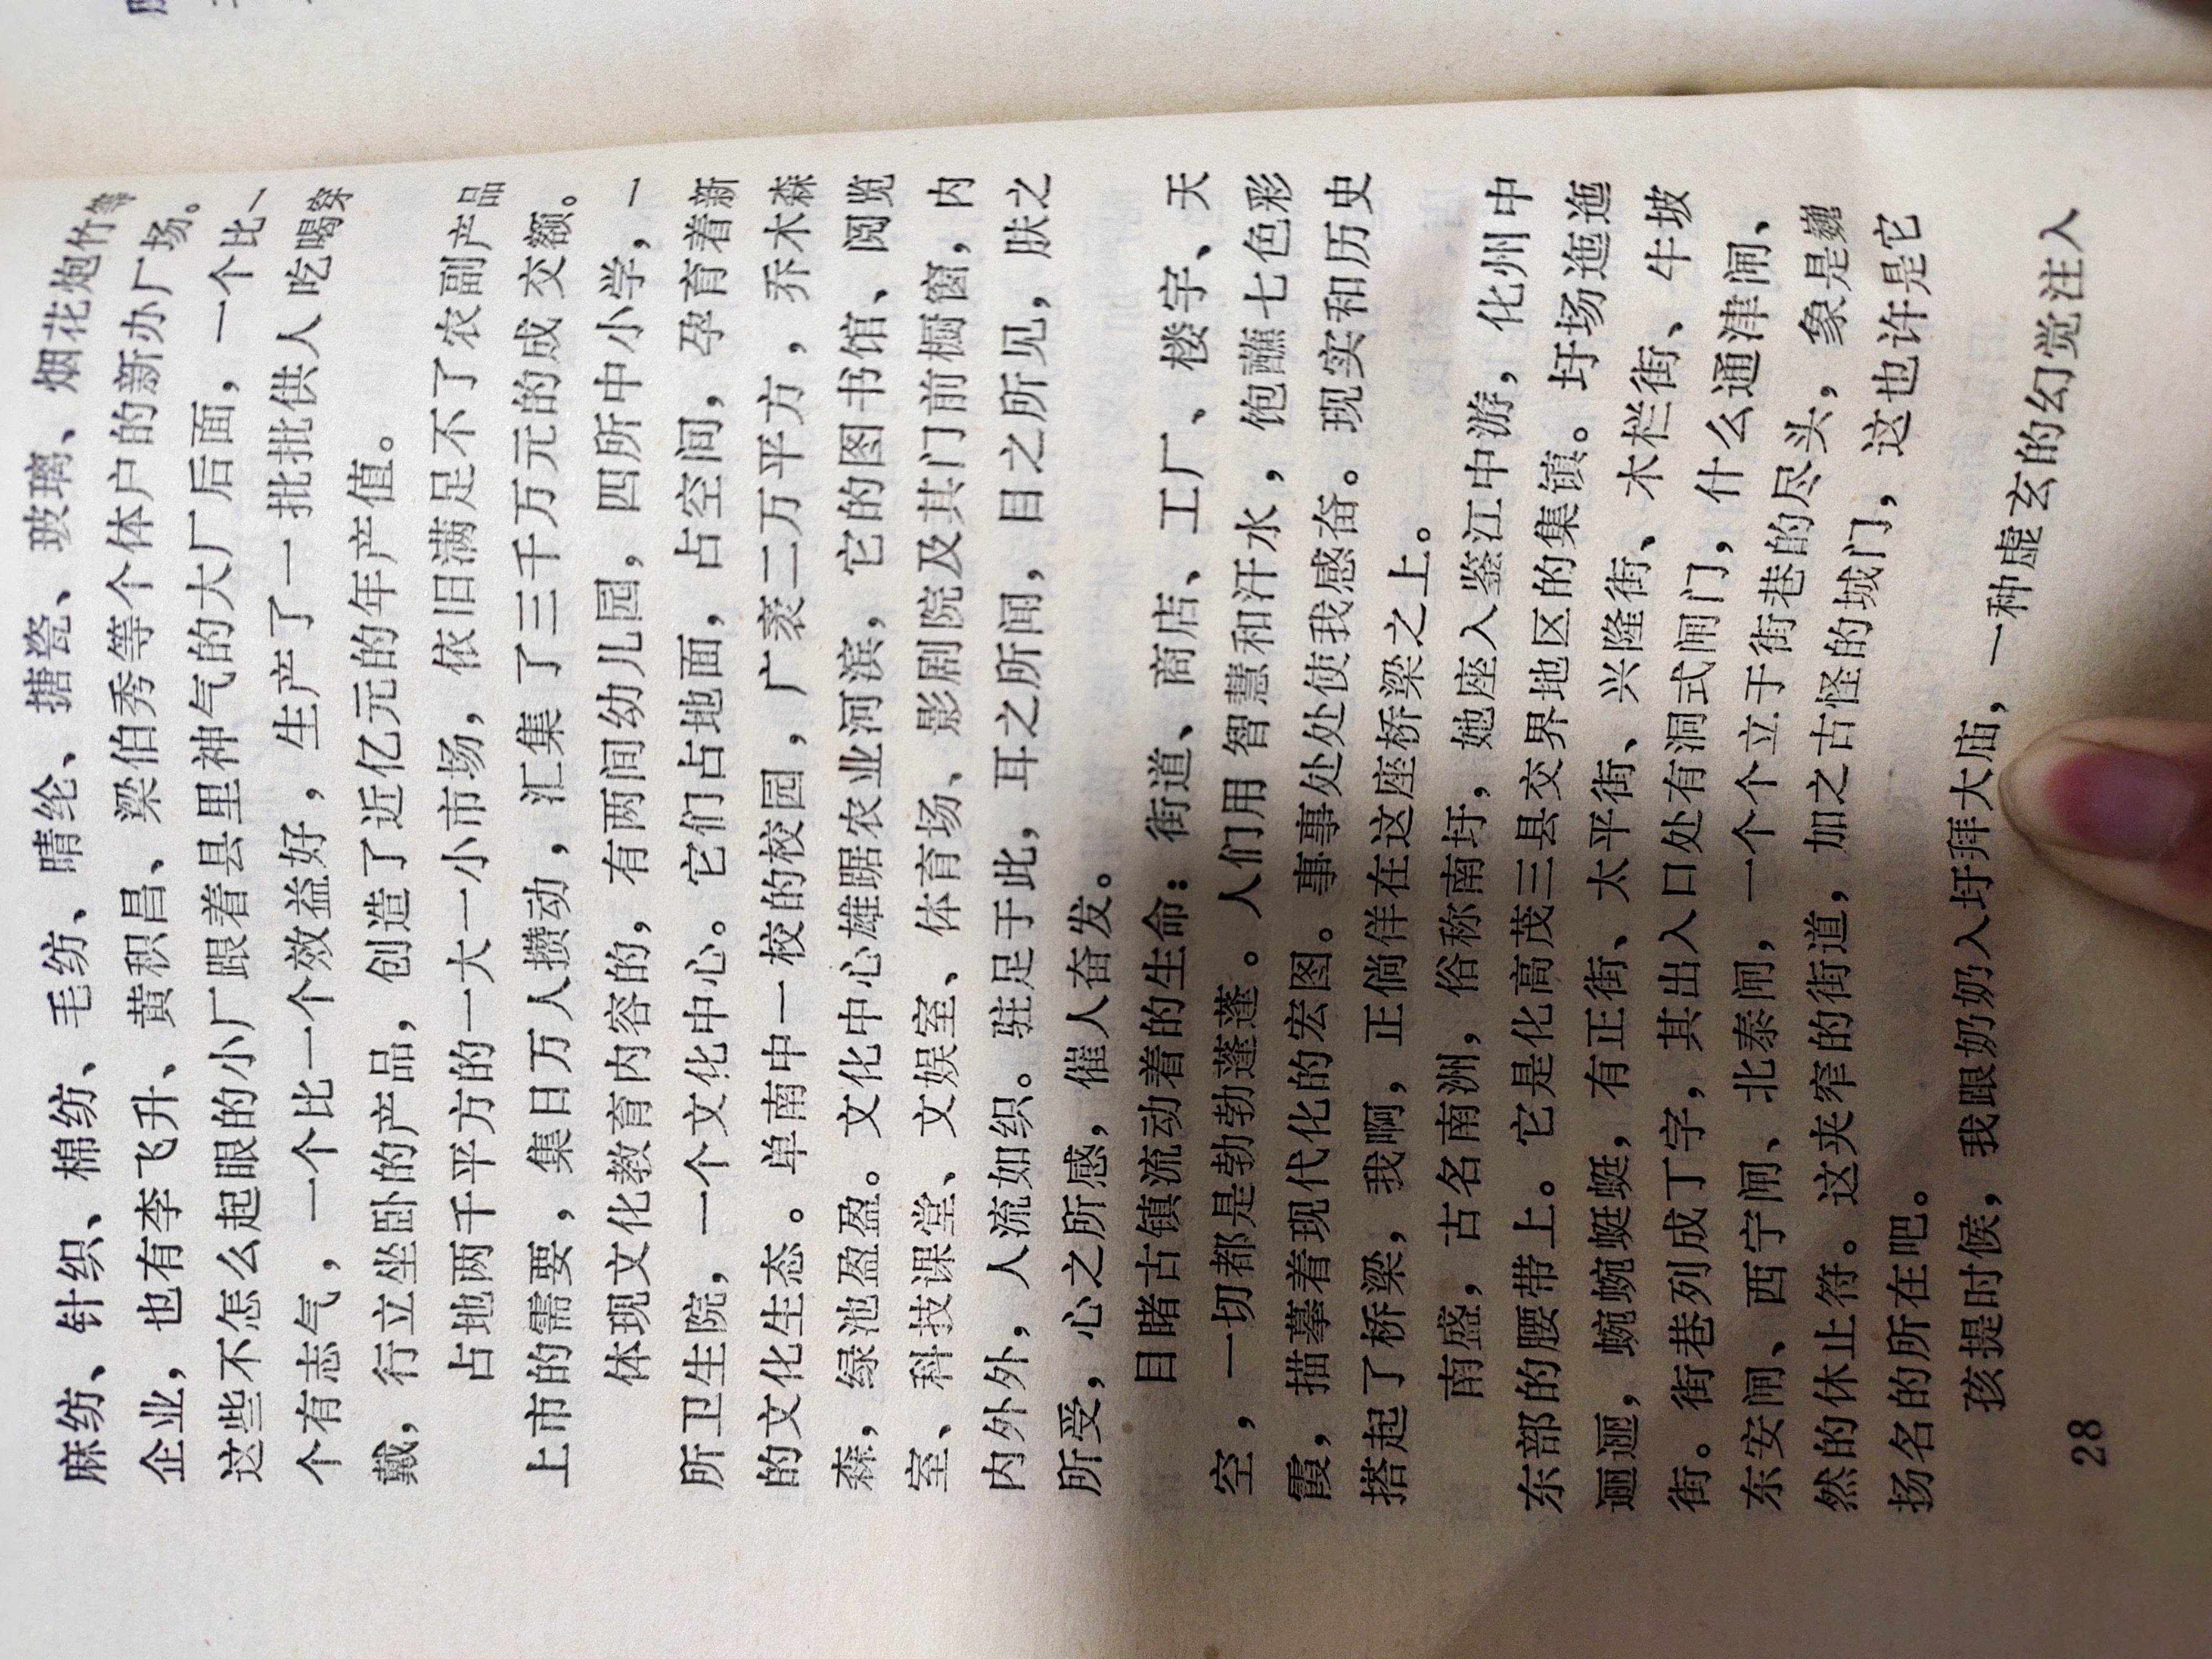 麻纺、针织、棉纺、毛纺、晴纶、搪瓷、玻璃、烟花炮竹等
企业，也有李飞升、黄积昌、梁伯秀等个体户的新办厂场。
这些不怎么起眼的小厂跟着县里神气的大厂后面，一个比一
个有志气，一个比一个效益好，生产了一批批供人吃喝穿
戴，行立坐卧的产品，创造了近亿元的年产值。
占地两千平方的一大一小市场，依旧满足不了农副产品
上市的需要，集日万人攒动，汇集了三千万元的成交额。
体现文化教育内容的，有两间幼儿园，四所中小学，一
所卫生院，一个文化中心。它们占地面，占空间，孕育着新
的文化生态。单南中一校的校园，广袤二万平方，乔木森
森，绿池盈盈。文化中心雄踞农业河滨，它的图书馆、阅览
室、科技课堂、文娱室、体育场、影剧院及其门前橱窗，内
内外外，人流如织。驻足于此，耳之所闻，目之所见，肤之
所受，心之所感，催人奋发。
目睹古镇流动着的生命：街道、商店、工厂、楼宇、天
空，一切都是勃勃蓬蓬。人们用智慧和汗水，饱蘸七色彩
霞，描摹着现代化的宏图。事事处处使我感奋。现实和历史
搭起了桥梁，我啊，正倘佯在这座桥梁之上。
南盛，古名南洲，俗称南圩，她座入鉴江中游，化州中
东部的腰带上。它是化高茂三县交界地区的集镇。圩场迤迤
逦逦，蜿蜿蜒蜒，有正街、太平街、兴隆街、木栏街、牛坡
街。街巷列成丁字，其出入口处有洞式闸门，什么通津闸、
东安闸、西宁闸、北泰闸，一个个立于街巷的尽头，象是巍
然的休止符。这夹窄的街道，加之古怪的城门，这也许是它
扬名的所在吧。
孩提时候，我跟奶奶入圩拜大庙，一种虚玄的幻觉注入
28